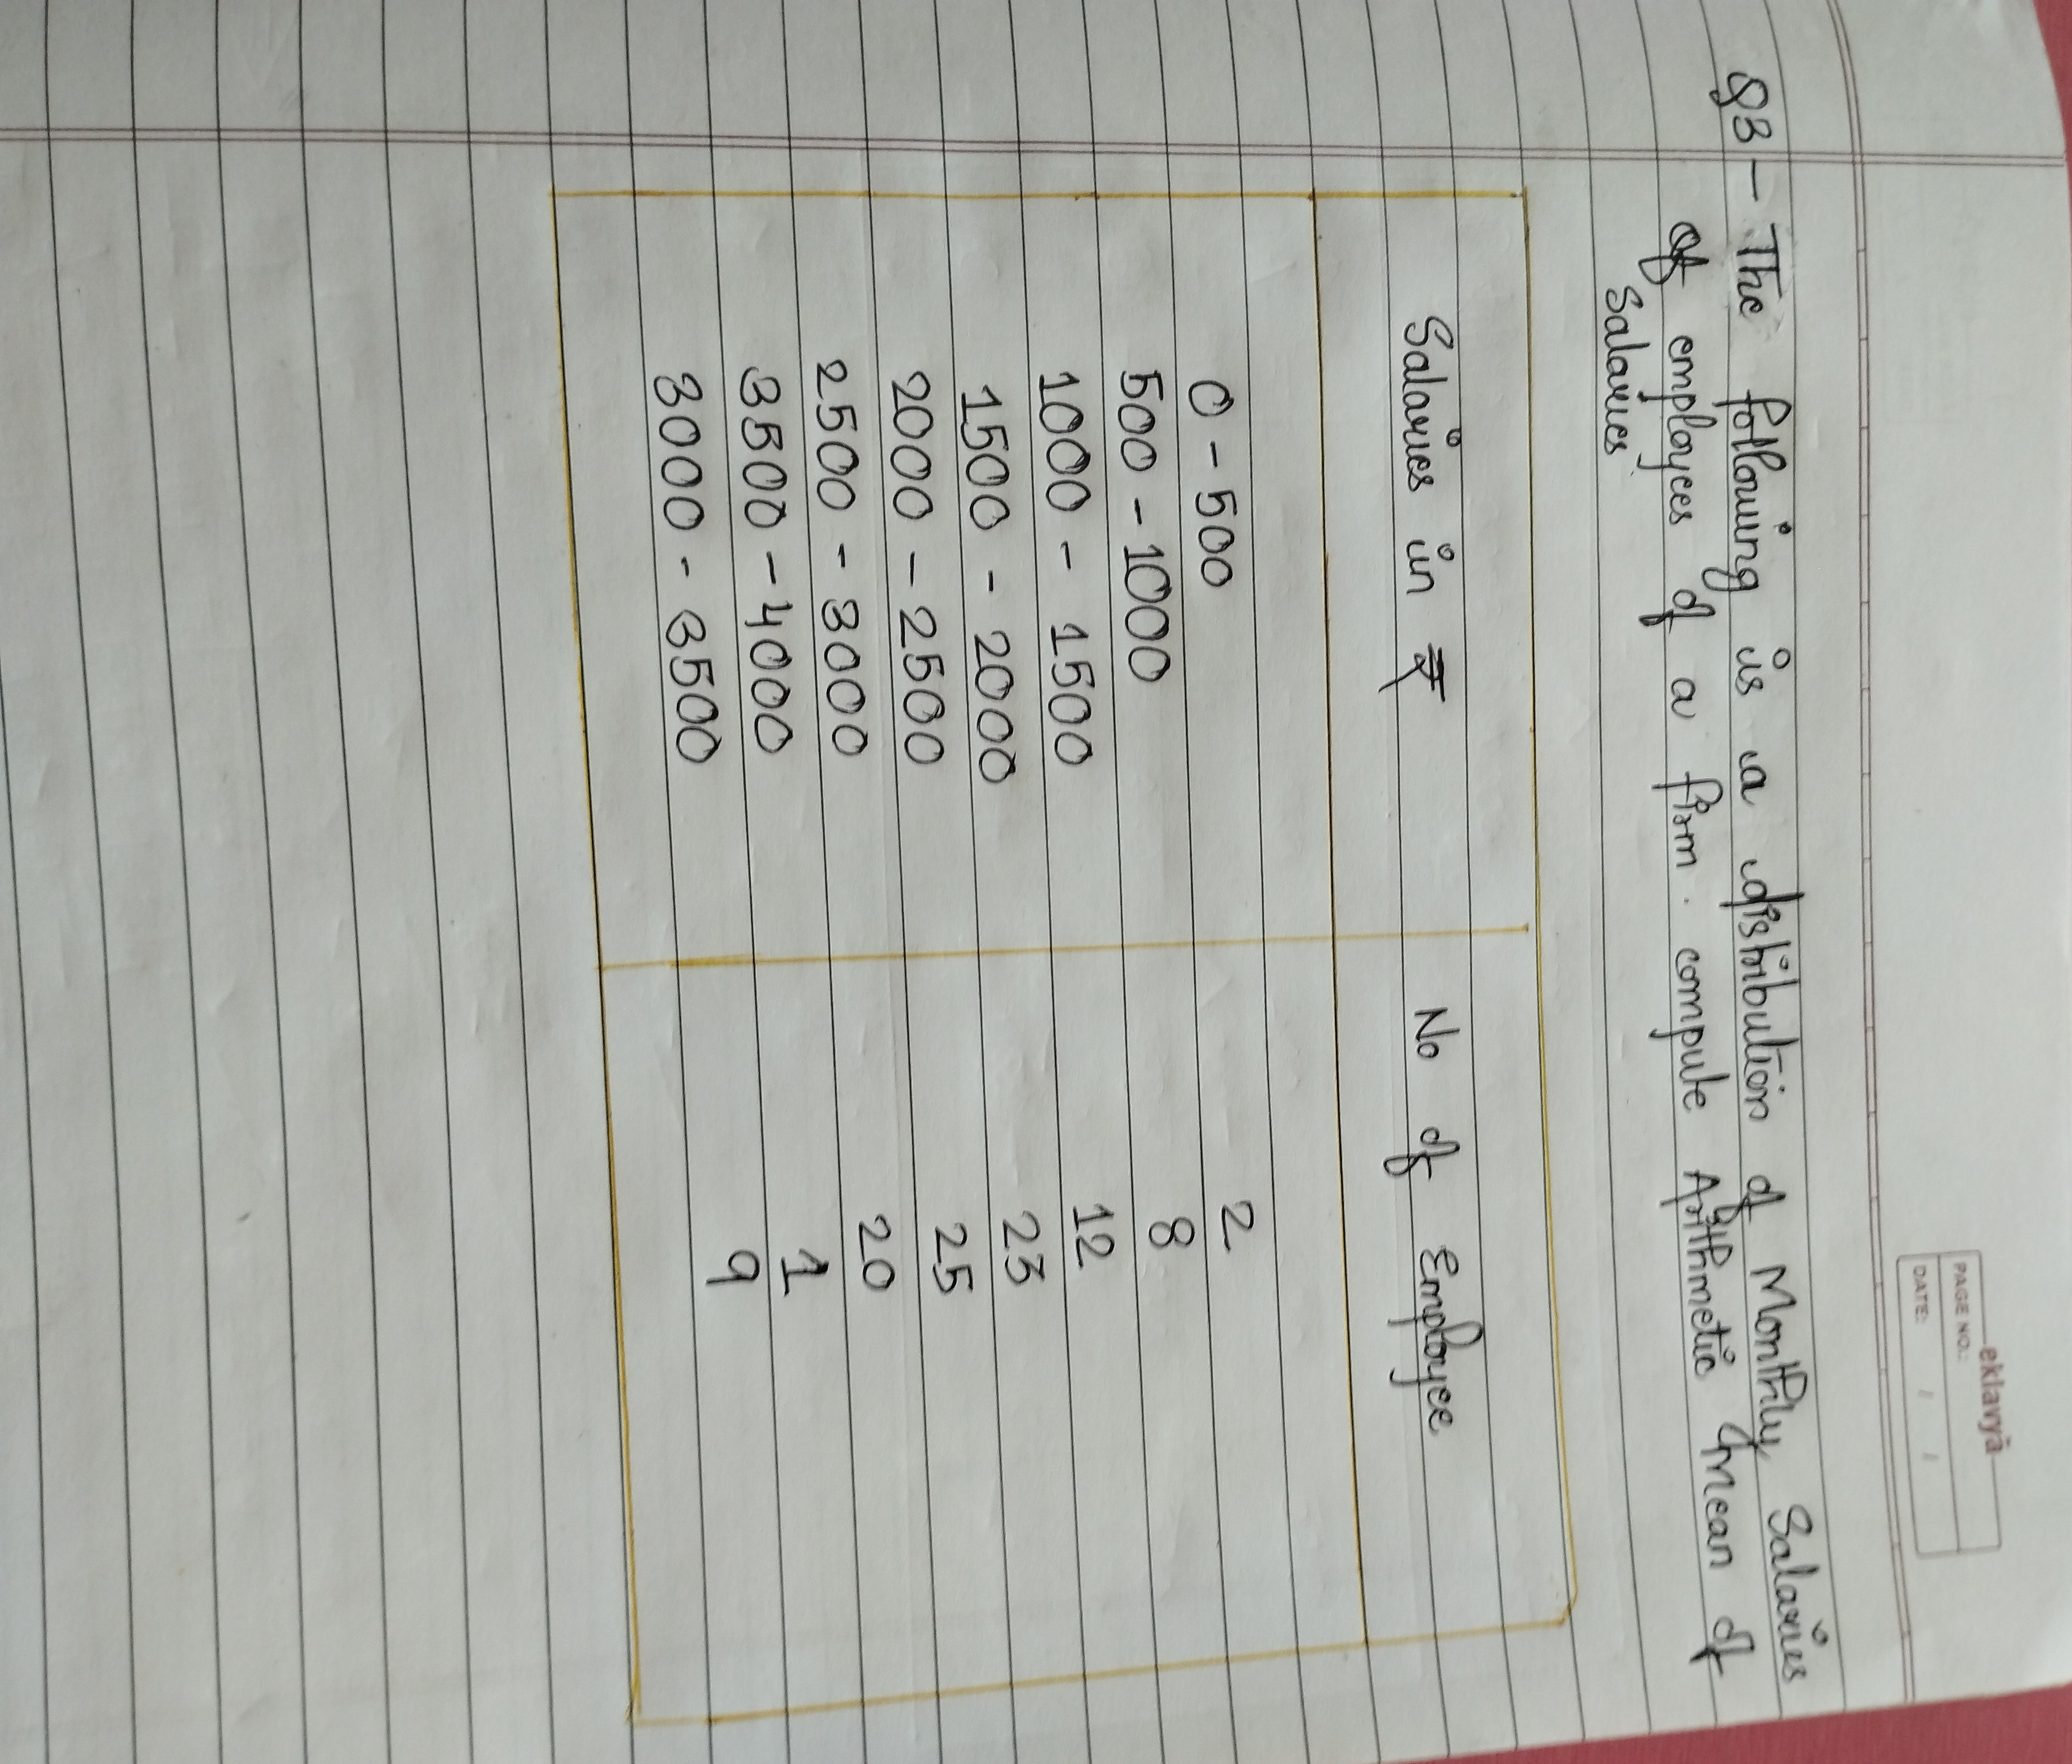 eklavya
PAGE NO.:
DATE: / /
Q3 - The following is a distribution of Monthly Salaries
of employees of a firm. compute Arithmetic Mean of
Salaries
Salaries in ₹ No of Employee
0 - 500 2
500 - 1000 8
1000 - 1500 12
1500 - 2000 23
2000 - 2500 25
2500 - 3000 20
3500 - 4000 1
3000 - 3500 9